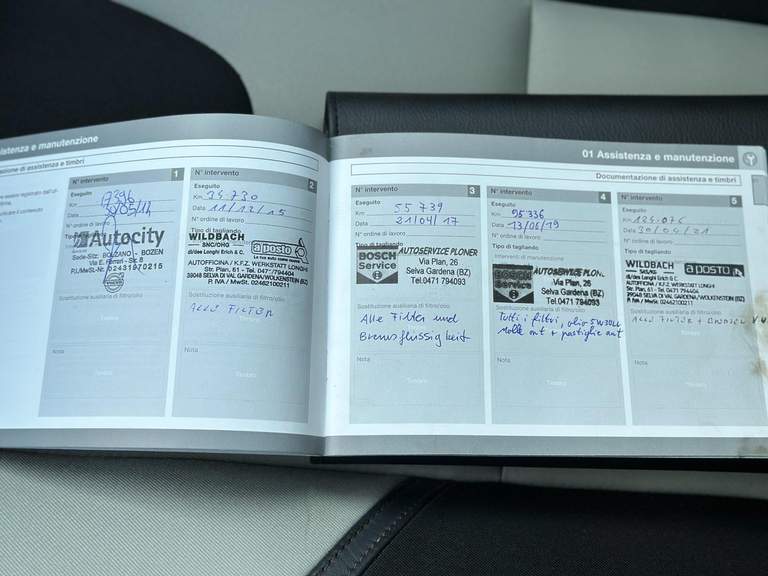 istenza e manutenzione
zione di assistenza e timbri
1
N° intervento
Eseguito
Km 17396
Data
N° ordine di lavoro
Autocity
Sede-Sitz: BOLZANO - BOZEN
Via E. Ferrari - Str. 8
P.I./MwSt.-Nr. 02431970215
Sostituzione ausiliaria di filtro/olio:
Nota
2
N° intervento
Eseguito
Km 34.730
Data 11/12/15
N° ordine di lavoro
WILDBACH
SNC/OHG
di/des Longhi Erich & C.
a posto
AUTOFFICINA / K.F.Z. WERKSTATT LONGHI
Str. Plan, 61 - Tel. 0471 / 794404
39048 SELVA DI VAL GARDENA/WOLKENSTEIN (BZ)
P. IVA / MwSt. 02462100211
Sostituzione ausiliaria di filtro/olio:
ALLE FILTER
Nota
Timbro
01 Assistenza e manutenzione
Documentazione di assistenza e timbri
N° intervento 3
Eseguito
Km 55 739
Data 21/04/17
N° ordine di lavoro
Tipo di tagliando
BOSCH
Service
AUTOSERVICE PLONER
Via Plan, 26
Selva Gardena (BZ)
Tel.0471 794093
Sostituzione ausiliaria di filtro/olio:
Alle Filter und
Bremsflüssigkeit
Nota
Timbro
N° intervento 4
Eseguito
Km 95 336
Data 13/06/19
N° ordine di lavoro
Tipo di tagliando
Interventi di manutenzione
BOSCH
Service
AUTOSERVICE PLON
Via Plan, 26
Selva Gardena (BZ)
Tel.0471 794093
Sostituzione ausiliaria di filtro/olio:
Tutti i filtri, olio 5W30LL
Molle ant + pastiglie ant
Nota
Timbro
N° intervento 5
Eseguito
Km
Data
N° ordine di lavoro
Tipo di tagliando
WILDBACH
SAS/KG
di/des Longhi Erich & C.
a posto
AUTOFFICINA / K.F.Z. WERKSTATT LONGHI
Str. Plan, 61 - Tel. 0471 794404
39048 SELVA DI VAL GARDENA/WOLKENSTEIN (BZ)
P. IVA / MwSt. 02462100211
Sostituzione ausiliaria di filtro/olio:
ALLE FILTER +
Nota
Timbro